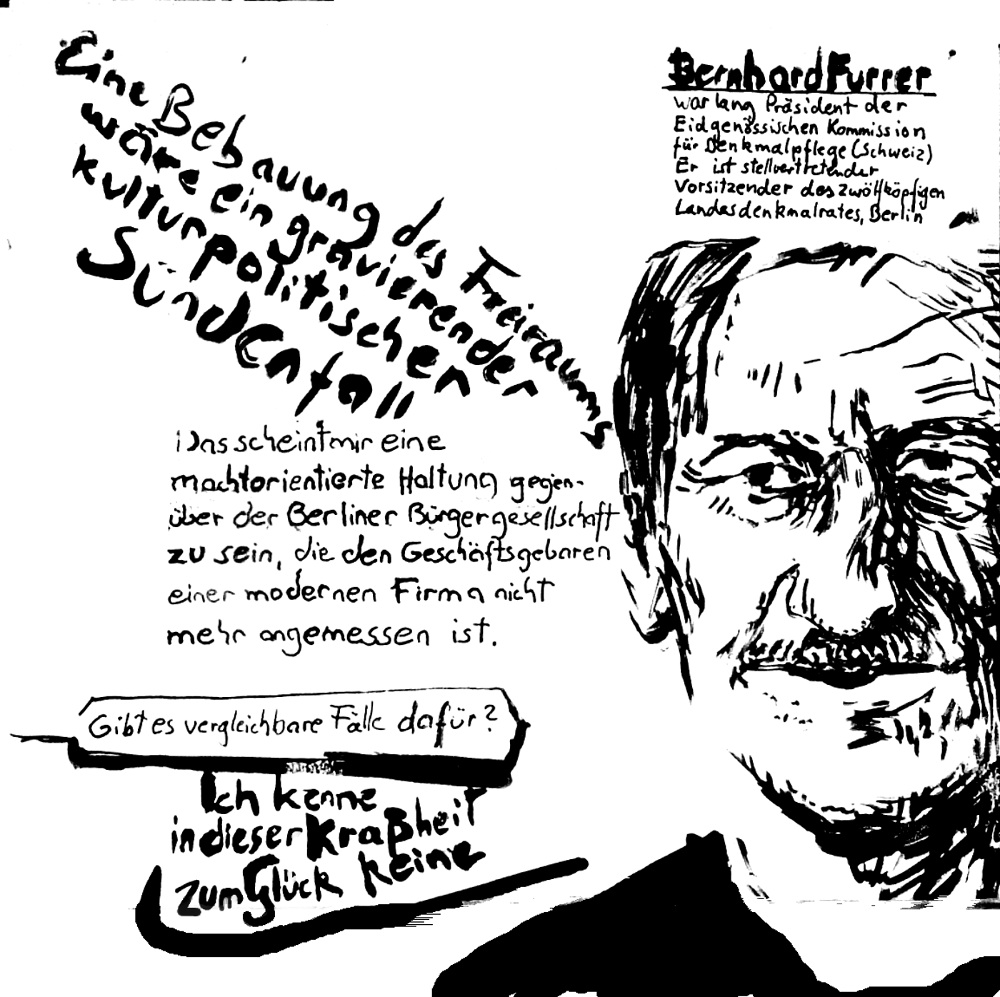 Eine Bebauung des Freiraums
wäre ein gravierender
kulturpolitischer
Sündenfall
Bernhard Furrer
war lang Präsident der
Eidgenössischen Kommission
für Denkmalpflege (Schweiz)
Er ist stellvertretender
Vorsitzender des zwölfköpfigen
Landesdenkmalrates, Berlin
Das scheint mir eine
machtorientierte Haltung gegen-
über der Berliner Bürgergesellschaft
zu sein, die den Geschäftsgebaren
einer modernen Firma nicht
mehr angemessen ist.
Gibt es vergleichbare Fälle dafür?
Ich kenne
in dieser Kraßheit
zum Glück keine